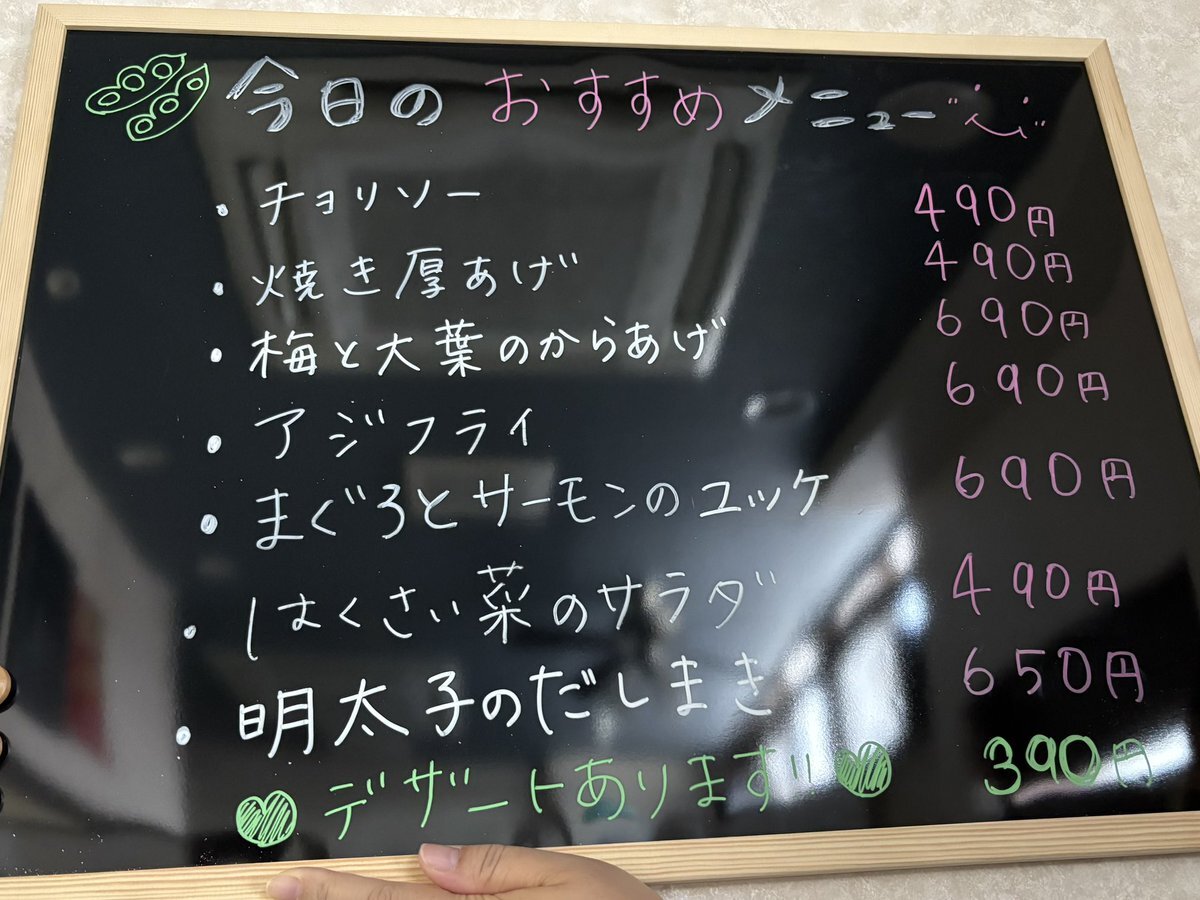 今日のおすすめメニュー
・チョリソー 490円
・焼き厚あげ 490円
・梅と大葉のからあげ 690円
・アジフライ 690円
・まぐろとサーモンのユッケ 690円
・はくさい菜のサラダ 490円
・明太子のだしまき 650円
♥デザートあります!!♥ 390円